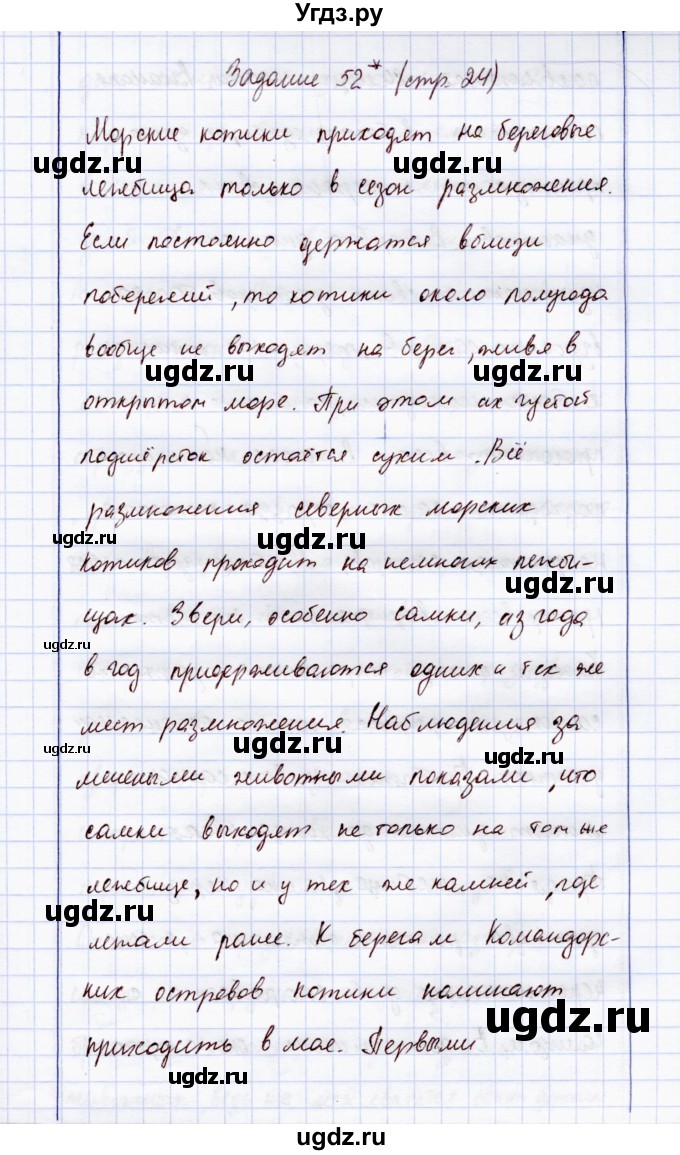 Угдз.ру
Задание 52* (стр. 24)
Морские котики приходят на береговые
ugdz.ru ugdz.ru
лежбища только в сезон размножения.
Если постоянно держатся вблизи
побережий, то котики около полугода
вообще не выходят на берег, живя в
ugdz.ru ugdz.ru
открытом море. При этом их густой
подшёрсток остаётся сухим. Всё
размножения северных морских
ugdz.ru ugdz.ru
котиков проходит на немногих лежби-
ugdz.ru
щах. Звери, особенно самки, из года
ugdz.ru
в год придерживаются одних и тех же
мест размножения. Наблюдения за
ugdz.ru ugdz.ru ugdz.ru
мечеными животными показали, что
самки выходят не только на том же
лежбище, но и у тех же камней, где
ugdz.ru
лежали ранее. К берегам Командорс-
ких островов котики начинают
ugdz.ru
приходить в мае. Первыми
ugdz.ru
ugdz.ru